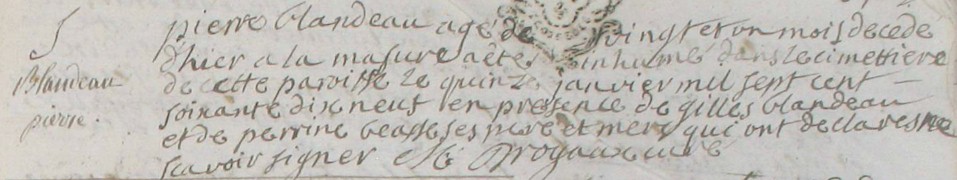 S
Blandeau
pierre
pierre blandeau agé de vingt et un mois decede
d'hier a la masure a eté inhumé dans le cimettiere
de cette paroisse le quinze janvier mil sept cent
soixante dix neuf en presence de gilles blandeau
et de perrine beasse ses pere et mere qui ont declare ne
scavoir signer